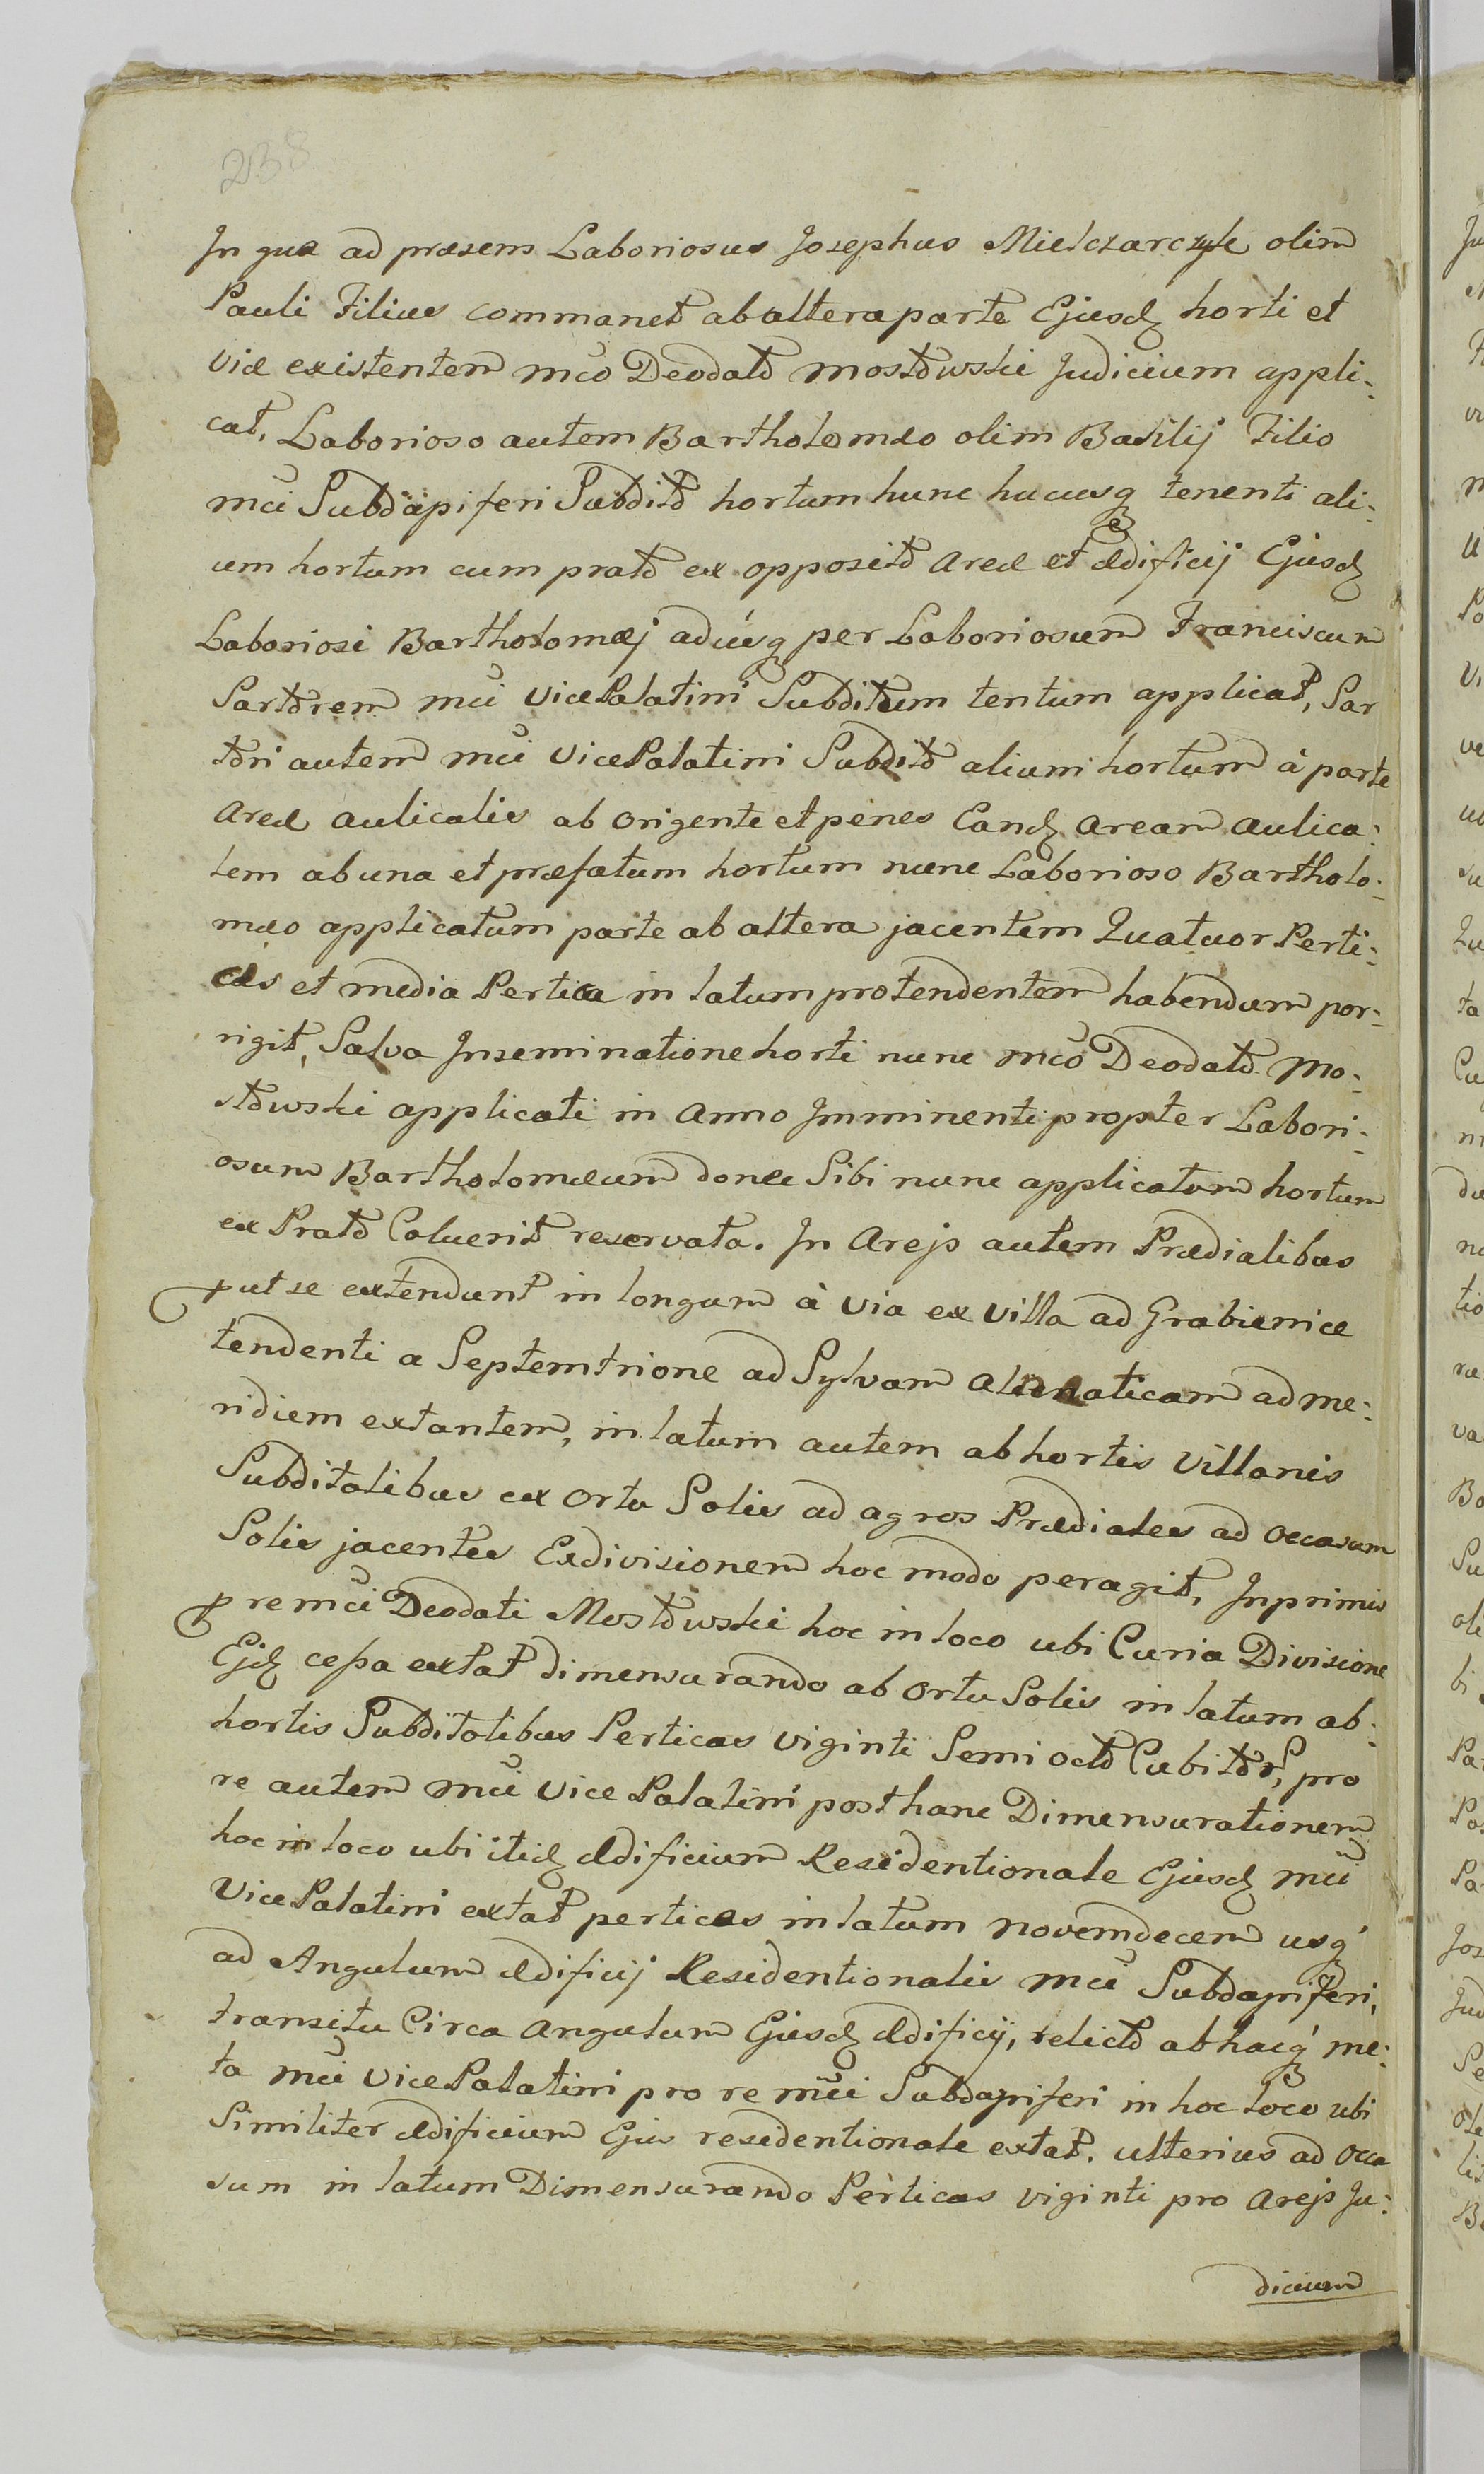 238
In qua ad præsens Laboriosus Josephus Mielczarczyk olim
Pauli Filius commanet ab altera parte Ejusdq horti et
viæ existentem mco Deodato Mostowski Judicium appli:
cat, Laborioso autem Bartholomæo olim Basilij Filio
mci Subdapiferi Subdito hortum hunc hucusq tenenti ali:
um hortum cum prato ex opposito areæ et ædificij Ejusdq
Laboriosi Bartholomæj aducusq per Laboriosum Franciscum
Sartorem mci Vice Palatini Subditum tentum applicat, Sar
tori autem mci Vice Palatini Subdito alium hortum à parte
areæ aulicalis ab origente et penes Eandq aream aulica:
lem ab una et præfatum hortum nunc Laborioso Bartholo:
mæo applicatum parte ab altera jacentem Quatuor Perti:
cas et media Pertica in latum protendentem habendum por:
rigit, Salva Inseminatione horti nunc mco Deodato Mo:
stowski applicati in anno Imminenti propter Labori:
osum Bartholomæum donec Sibi nunc applicatum hortum
ex Prato Coluerit reservata. In Arejs autem Prædialibus
put se extendunt in longum à via ex villa ad Grabienice
tendenti a Septemtrione ad Sylvam alnaticam ad me:
ridiem extantem, in latum autem ab hortis villanis
Subditalibus ex ortu Solis ad agros Prædiales ad occasum
Solis jacentes Exdivisionem hoc modo peragit, Inprimis
p re mci Deodati Mostowski hoc in loco ubi Curia Divisione
Ejdq cessa extat dimensurando ab ortu Solis in latum ab:
hortis Subditalibus Perticas viginti Semi octo Cubitor, pro
re autem mci Vice Palatini post hanc Dimensurationem
hoc in loco ubi itidq ædificium Residentionale Ejusdq mci
Vice Palatini extat perticas in latum novemdecem usq
ad Angulum ædificij Residentionalis mci Subdapiferi,
transitu Circa angulum Ejusdq ædificij, relicto ab hacq me:
ta mci Vice Palatini pro re mci Subdapiferi in hoc loco ubi
Similiter ædificium Ejus residentionale extat, ulterius ad occa
sum in latum Dimensurando Perticas viginti pro arejs Ju:
dicium